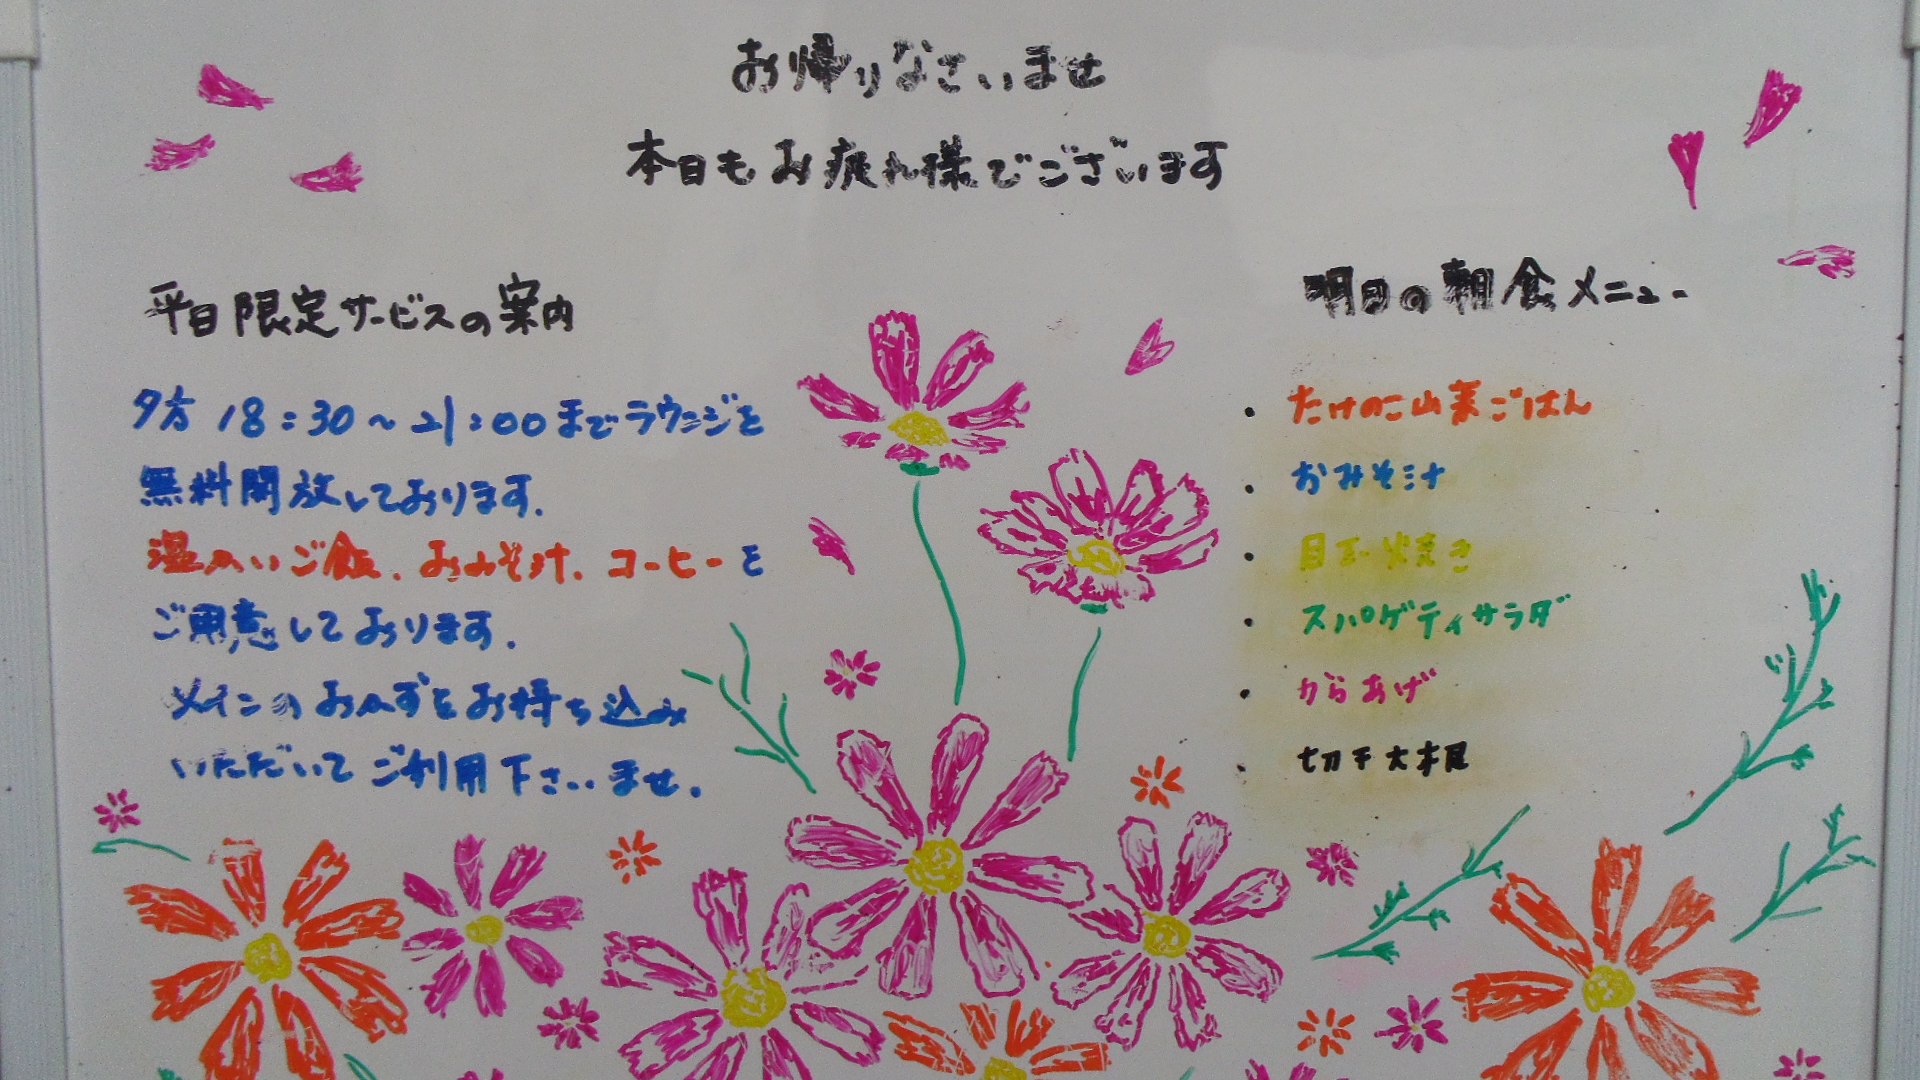 お帰りなさいませ
本日もお疲れ様でございます
平日限定サービスの案内
夕方 18:30～21:00までラウンジを
無料開放しております.
温かいご飯、おみそ汁、コーヒーを
ご用意しております.
メインのおかずをお持ち込み
いただいてご利用下さいませ.
明日の朝食メニュー
・たけのこ山菜ごはん
・おみそ汁
・目玉焼き
・スパゲティサラダ
・からあげ
・切干大根